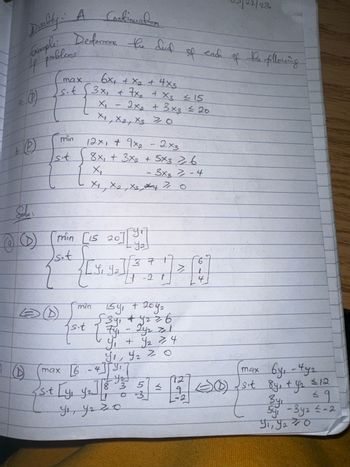 Duality: A Continuation
Example: Determine the dual of each of the following
LP problems
a. (P) max 6x₁ + x₂ + 4x₃
s.t 3x₁ + 7x₂ + x₃ ≤ 15
x₁ - 2x₂ + 3x₃ ≤ 20
x₁, x₂, x₃ ≥ 0
(P) min 12x₁ + 9x₂ - 2x₃
s.t 8x₁ + 3x₂ + 5x₃ ≥ 6
x₁ - 3x₃ ≥ -4
x₁, x₂, x₃ ≥ 0
Soln:
(a) (D) min [15 20] [y₁ y₂]
s.t [y₁ y₂] [3 7 1
1 -2 1] ≥ [6 1 4]
⇔ (D) min 15y₁ + 20y₂
s.t 3y₁ + y₂ ≥ 6
7y₁ - 2y₂ ≥ 1
y₁ + y₂ ≥ 4
y₁, y₂ ≥ 0
(D) max [6 -4] [y₁ y₂]
s.t [y₁ y₂] [8 3 5
1 0 -3] ≤ [12 9 -2]
y₁, y₂ ≥ 0
⇔ (D) max 6y₁ - 4y₂
s.t 8y₁ + y₂ ≤ 12
3y₁ ≤ 9
5y₁ - 3y₂ ≤ -2
y₁, y₂ ≥ 0